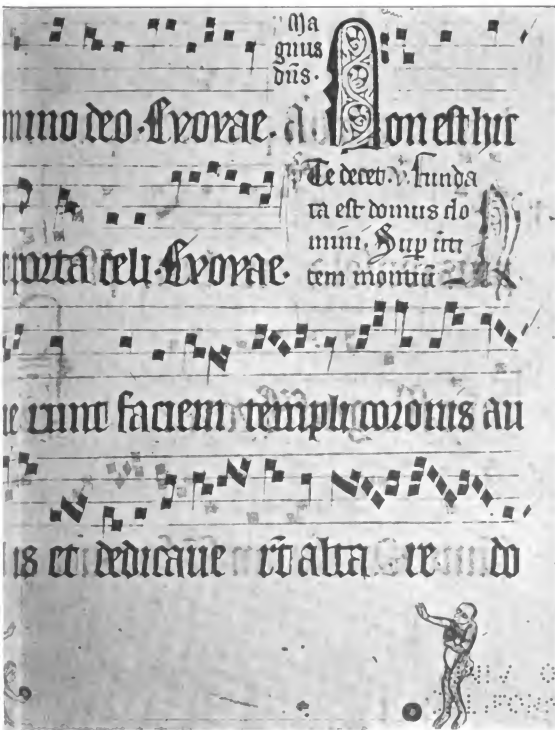 Ma
gnus
dñs.
mino deo. Evovae. Non est hic
Te decet. v. funda
ta est domus do
mini. Sup
tem montiū
porta celi. Evovae.
runt faciem templi coronis au
is et dedicaue rūt alta re do